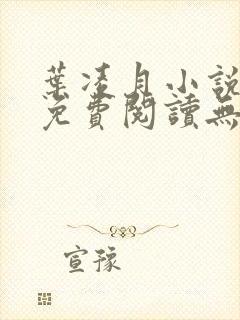 葉凌月小說
免費閱讀無
宣豫